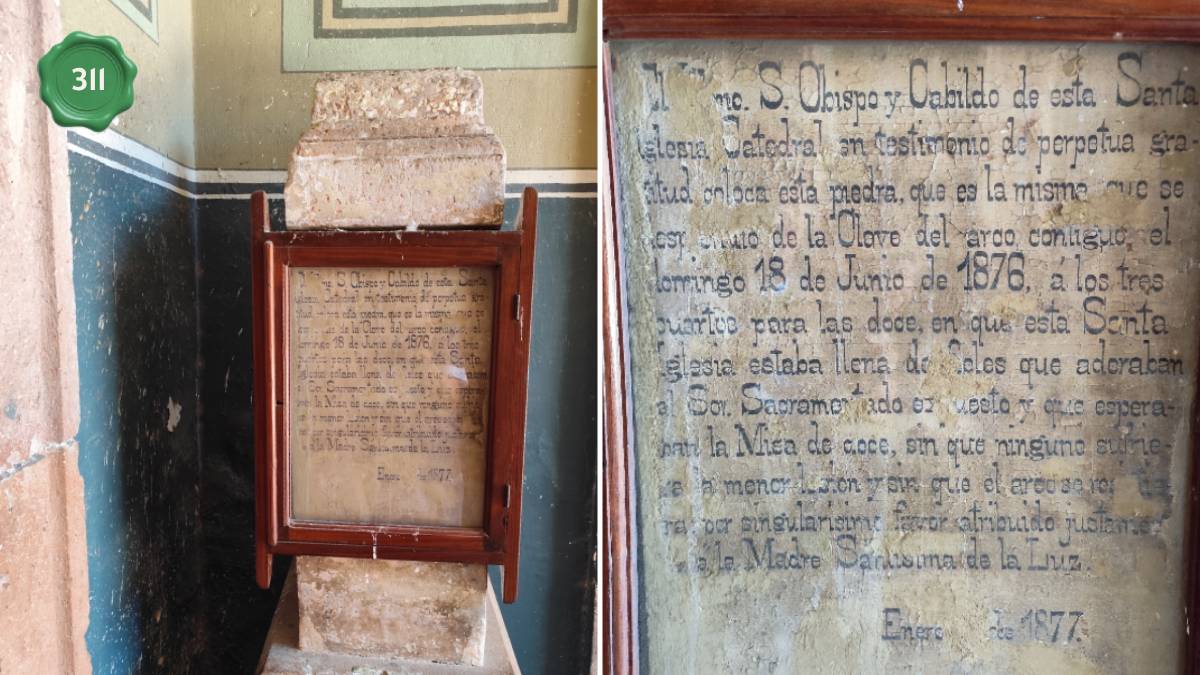 311
S. Obispo y Cabildo de esta Santa
Iglesia Catedral en testimonio de perpetua gra-
titud coloca esta piedra, que es la misma que se
de la Clave del arco contiguo, el
domingo 18 de Junio de 1876, á los tres
cuartos para las doce, en que esta Santa
Iglesia estaba llena de fieles que adoraban
al Sor. Sacramentado expuesto y que espera-
ban la Misa de doce, sin que ninguno sufrie-
ra la menor lesion y sin que el arco se
ra por singularisimo favor atribuido justamen
á la Madre Santisima de la Luz.
Enero de 1877.